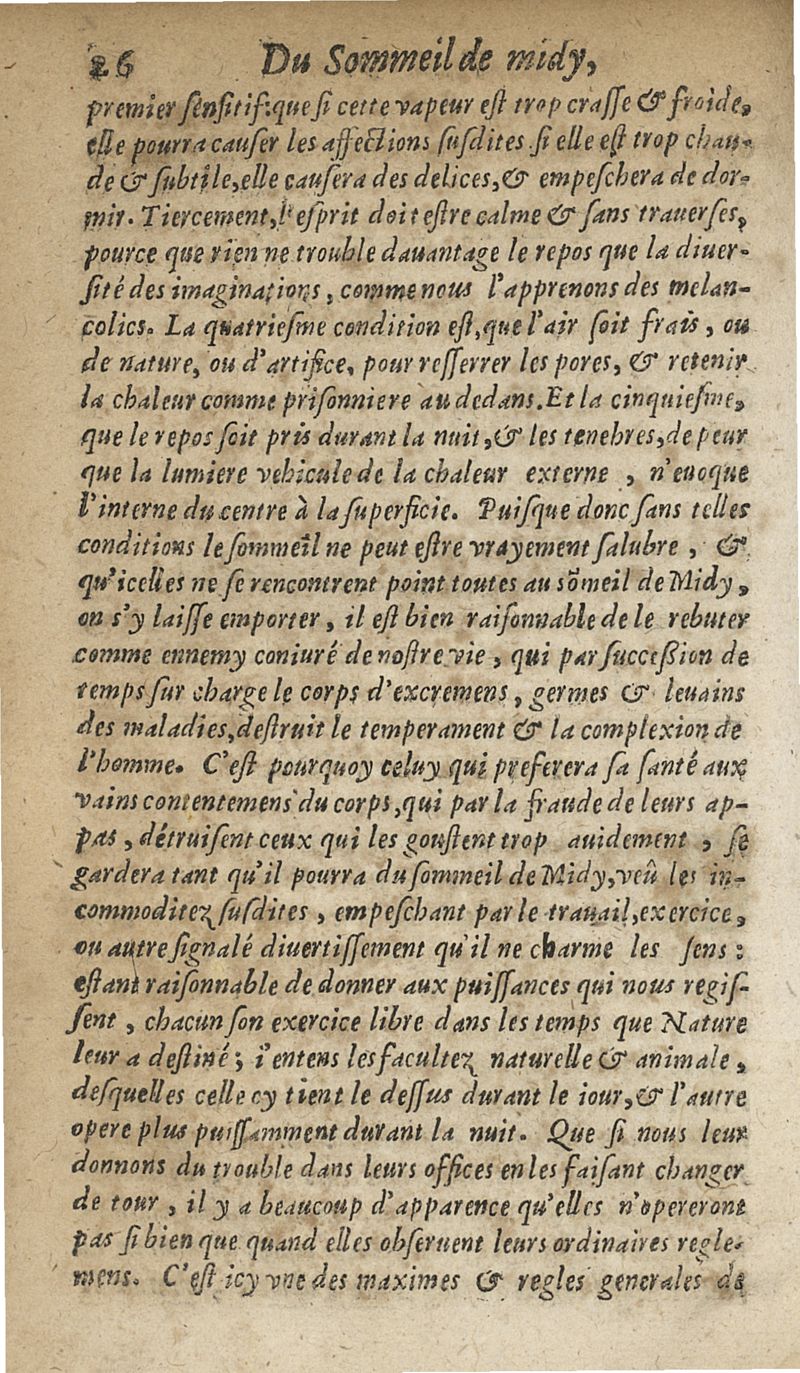 26 Du Sommeil de midy,
premier sensitif: que si cette vapeur est trop crasse & froide,
elle pourra causer les affections susdites si elle est trop chau-
de & subtile, elle causera des delices, & empeschera de dor-
mir. Tiercement, l'esprit doit estre calme & sans trauerses,
pource que rien ne trouble dauantage le repos que la diuer-
sité des imaginations, comme nous l'apprenons des melan-
colics. La quatriesme condition est, que l'air soit frais, ou
de nature, ou d'artifice, pour resserrer les pores, & retenir
la chaleur comme prisonniere au dedans. Et la cinquiesme,
que le repos soit pris durant la nuit, & les tenebres, de peur
que la lumiere vehicule de la chaleur externe, n'euoque
l'interne du centre à la superficie. Puisque donc sans telles
conditions le sommeil ne peut estre vrayement salubre, &
qu'icelles ne se rencontrent point toutes au sõmeil de Midy,
on s'y laisse emporter, il est bien raisonnable de le rebuter
comme ennemy coniuré de nostre vie, qui par succession de
temps sur charge le corps d'excremens, germes & leuains
des maladies, destruit le temperament & la complexion de
l'homme. C'est pourquoy celuy qui preferera sa santé aux
vains contentemens du corps, qui par la fraude de leurs ap-
pas, détruisent ceux qui les goustent trop auidement, se
gardera tant qu'il pourra du sommeil de Midy, veû les in-
commoditez susdites, empeschant par le trauail, exercice,
ou autre signalé diuertissement qu'il ne charme les sens:
estant raisonnable de donner aux puissances qui nous regis-
sent, chacun son exercice libre dans les temps que Nature
leur a destiné; i'entens les facultez naturelle & animale,
desquelles celle cy tient le dessus durant le iour, & l'autre
opere plus puissamment durant la nuit. Que si nous leur
donnons du trouble dans leurs offices en les faisant changer
de tour, il y a beaucoup d'apparence qu'elles n'opereront
pas si bien que quand elles obseruent leurs ordinaires regle-
mens. C'est icy vne des maximes & regles generales de